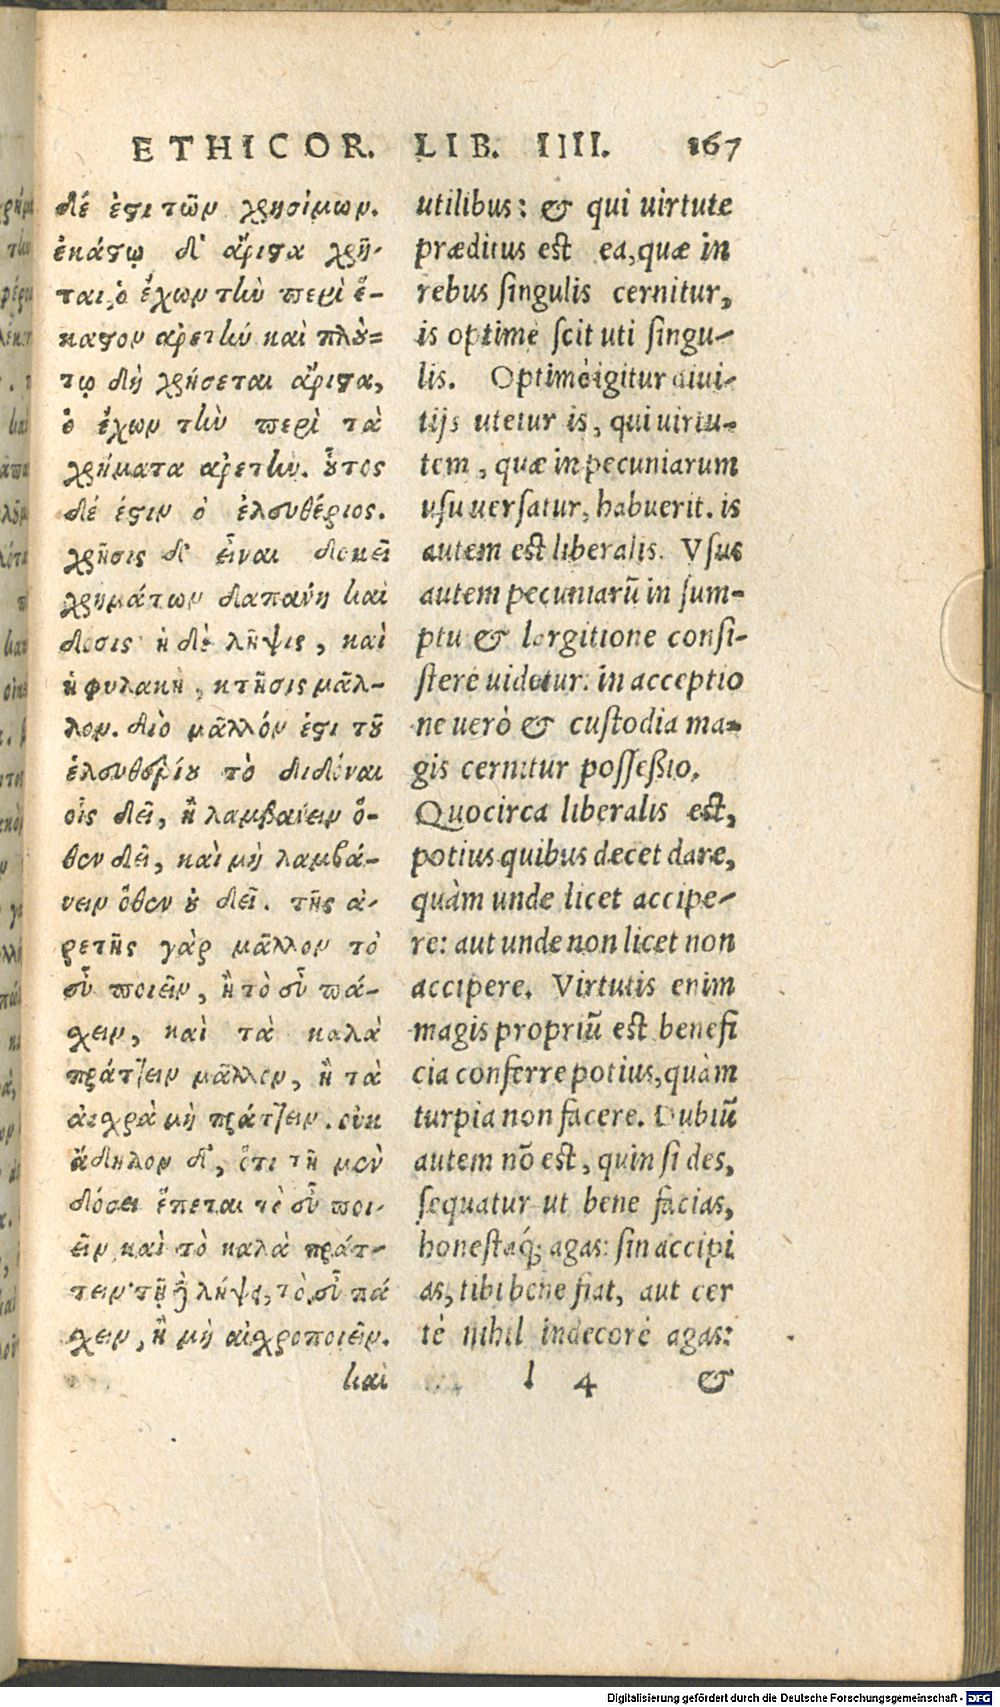 ETHICOR. LIB. IIII. 167
δέ ἐστι τῶν χρησίμων.
ἑκάστῳ δ' ἄριστα χρῆ-
ται, ὁ ἔχων τὴν περὶ ἕ-
καστον ἀρετήν. καὶ πλού=
τῳ δὴ χρήσεται ἄριστα,
ὁ ἔχων τὴν περὶ τὰ
χρήματα ἀρετήν. οὗτος
δέ ἐστιν ὁ ἐλευθέριος.
χρῆσις δ' εἶναι δοκεῖ
χρημάτων δαπάνη καὶ
δόσις· ἡ δὲ λῆψις, καὶ
ἡ φυλακὴ, κτῆσις μᾶλ-
λον. διὸ μᾶλλόν ἐστι τοῦ
ἐλευθερίου τὸ διδόναι
οἷς δεῖ, ἢ λαμβάνειν ὅ-
θεν δεῖ, καὶ μὴ λαμβά-
νειν ὅθεν οὐ δεῖ. τῆς ἀ-
ρετῆς γὰρ μᾶλλον τὸ
εὖ ποιεῖν, ἢ τὸ εὖ πά-
σχειν, καὶ τὰ καλὰ
πράττειν μᾶλλον, ἢ τὰ
αἰσχρὰ μὴ πράττειν. οὐκ
ἄδηλον δ', ὅτι τῇ μὲν
δόσει ἕπεται τὸ εὖ ποι-
εῖν καὶ τὸ καλὰ πράτ-
τειν· τῇ δὲ λήψει, τὸ εὖ πά
σχειν, ἢ μὴ αἰσχροποιεῖν.
καὶ
utilibus: & qui uirtute
præditus est ea, quæ in
rebus singulis cernitur,
is optime scit uti singu-
lis. Optimè igitur diui-
tijs utetur is, qui uirtu-
tem, quæ in pecuniarum
usu uersatur, habuerit. is
autem est liberalis. Vsus
autem pecuniarū in sum-
ptu & largitione consi-
stere uidetur: in acceptio
ne uerò & custodia ma-
gis cernitur possessio.
Quocirca liberalis est,
potius quibus decet dare,
quàm unde licet accipe-
re: aut unde non licet non
accipere. Virtutis enim
magis propriū est benefi
cia conferre potius, quàm
turpia non facere. Dubiū
autem nō est, quin si des,
sequatur ut bene facias,
honestaq́; agas: sin accipi
as, tibi bene fiat, aut cer
tè nihil indecorè agas:
l 4 &
Digitalisierung gefördert durch die Deutsche Forschungsgemeinschaft - DFG